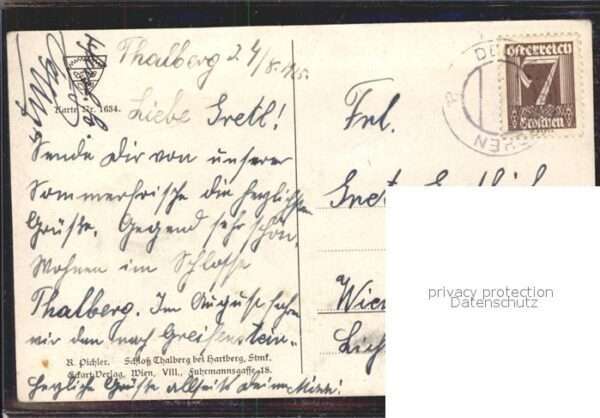 Thalberg 24/8. 1925.
Karte Nr. 1634.
Liebe Gretl!
Sende Dir von unserer
Sommerfrische die herzlichsten
Grüße. Gegend sehr schön,
Wohnen im Schlosse
Thalberg. Im August fahren
wir dan nach Greifenstein.
R. Pichler. Schloß Thalberg bei Hartberg, Stmk.
Eckart-Verlag, Wien, VIII., Fuhrmannsgasse 18.
Herzliche Grüße allseits Deine Mitzi!
Österreich
7
Groschen
Frl.
Wien
privacy protection
Datenschutz